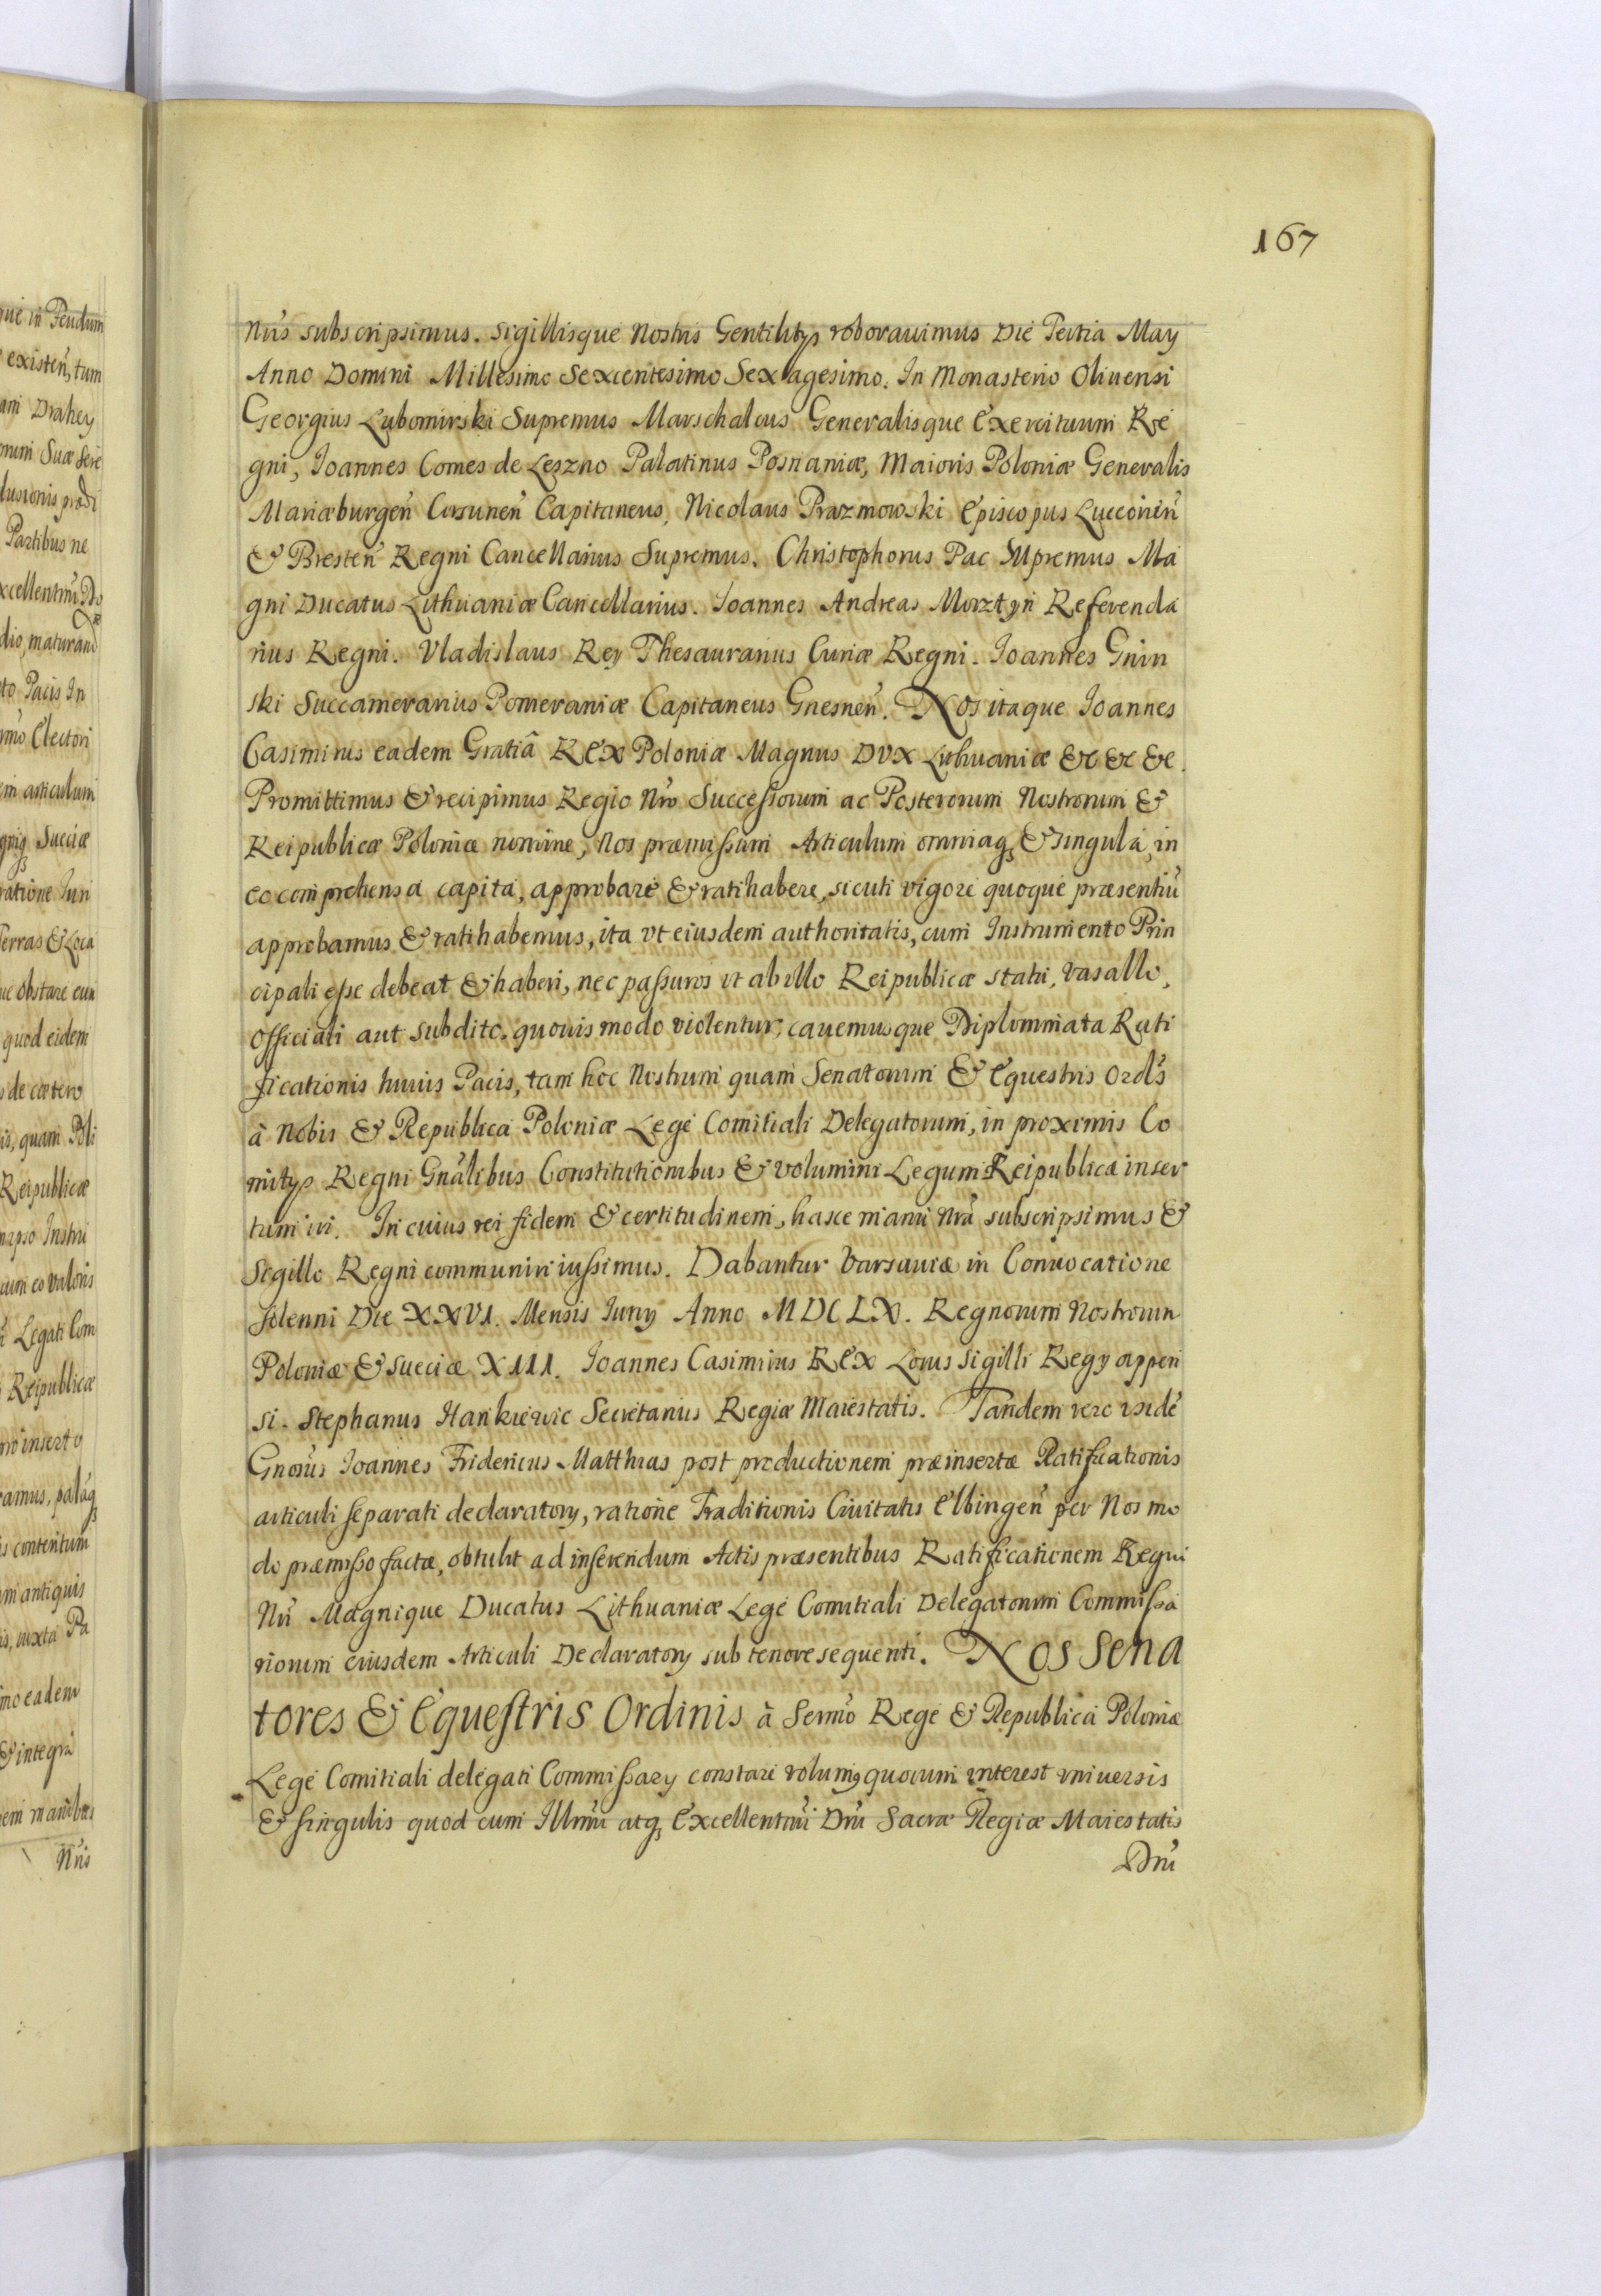 167
Nr̃is subscripsimus. Sigillisque Nostris Gentilitÿs roboravimus Die Tertia May
Anno Domini Millesimo Sexcentesimo Sexagesimo. In Monasterio Oliuensi
Georgius Lubomirski Supremus Marschalcus Generalisque Exercituum Re
gni, Joannes Comes de Leszno Palatinus Posnaniæ, Maioris Poloniæ Generalis
Mariæburgeñ Corsuneñ Capitaneus, Nicolaus Prazmowski Episcopus Lucceorieñ
& Bresteñ Regni Cancellarius Supremus. Christophorus Pac Supremus Ma
gni Ducatus Lithuaniæ Cancellarius. Joannes Andreas Morztyn Referenda
rius Regni. Vladislaus Rey Thesaurarius Curiæ Regni. Joannes Gnin
ski Succamerarius Pomeraniæ Capitaneus Gnesneñ. Nos itaque Joannes
Casimirus eadem Gratiâ REX Poloniæ Magnus DVX Lithuaniæ &c &c &c.
Promittimus & recipimus Regio Nr̃o Successorum ac Posterorum Nostrorum &
Reipublicæ Poloniæ nomine, Nos præmissum Articulum omniaq; & singula, in
eo comprehensa capita, approbare & ratihabere, sicuti vigore quoque præsentiũ
approbamus & ratihabemus, ita vt eiusdem authoritatis, cum Instrumento Prin
cipali esse debeat & haberi, nec passuros vt ab illo Reipublicæ statu, vasallo,
Officiali aut subdito, quouis modo violentur, cauemusque Diplommata Rati
ficationis huius Pacis, tam hoc Nostrum quam Senatorum & Equestris Ord̃is
à Nobis & Republica Poloniæ Lege Comitiali Delegatorum, in proximis Co
mitÿs Regni Gñalibus Constitutionibus & volumini Legum Reipublicæ inser
tum iri. In cuius rei fidem & certitudinem, hasce manu Nr̃a subscripsimus &
Sigillo Regni communiri iussimus. Dabantur Varsauiæ in Conuocatione
solenni Die XXVI. Mensis Iuny Anno MDCLX. Regnorum Nostrorum
Poloniæ & Sueciæ XIII. Joannes Casimirus REX Locus Sigilli Regÿ appen
si. Stephanus Hankiewic Secretarius Regiæ Maiestatis. Tandem vero ibide
Gnosũs Joannes Fridericus Matthias post productionem præinsertæ Ratificationis
articuli separati declaratory, ratione Traditionis Ciuitatis Elbingeñ per Nos mo
do præmisso factæ, obtulit ad inserendum Actis præsentibus Ratificationem Regni
Nr̃i Magnique Ducatus Lithuaniæ Lege Comitiali Delegatorum Commissa
riorum eiusdem Articuli Declaratory sub tenore sequenti. NOS Sena
tores & Equestris Ordinis à Sermõ Rege & Republica Poloniæ
Lege Comitiali delegati Commissary constare volumq quorum interest vniuersis
& singulis quod cum Illmũ atq; Excellentmũ Dñũ Sacræ Regiæ Maiestatis
Dñũ